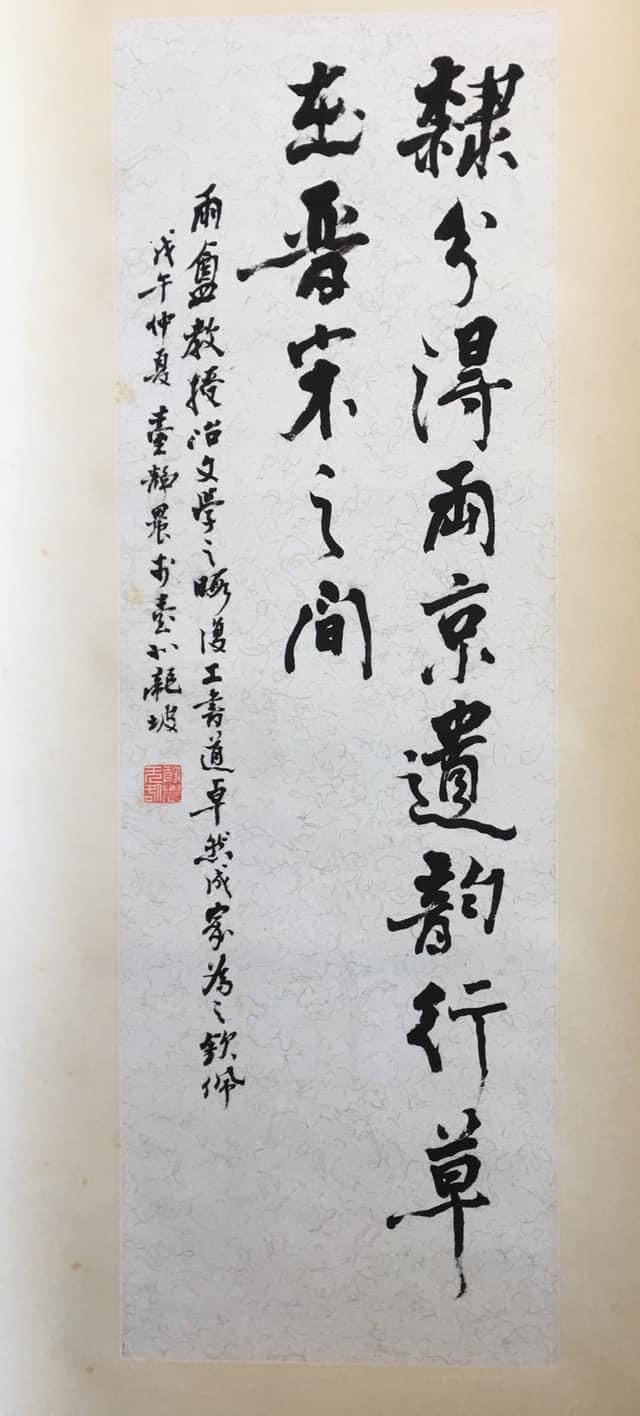 隸分得兩京遺韵行草
在晋宋之間
雨盦教授治文學之暇復工書道卓然成家為之欽佩
戊午仲夏臺靜農於臺北龍坡